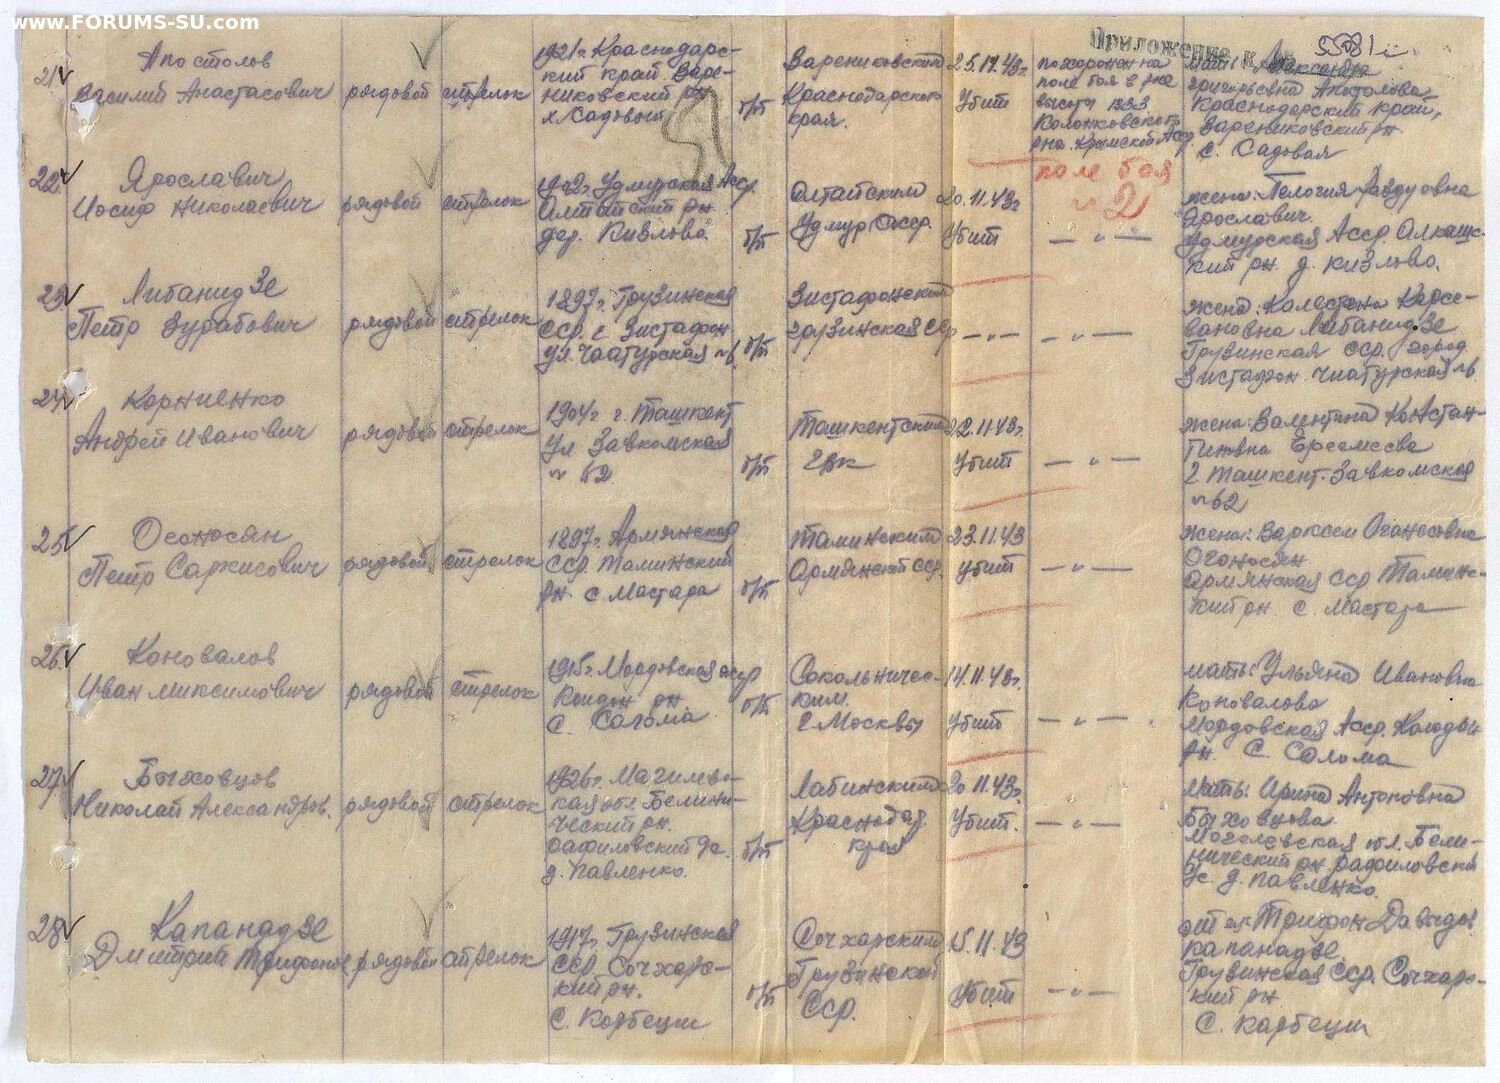 www.FORUMS-SU.com
Приложение к №
55081с
21
Апостолов
Василий Анастасович
рядовой
стрелок
1921г. Краснодарс-
кий край. Варе-
никовский рн
х. Садовый
б/п
Варениковским
Краснодарского
края.
25.11.43г.
Убит
похоронен на
поле боя в р-не
высоты 133.3
Колонковского
р-на. Крымской Асср
поле боя
№2
мать: Александра
григорьевна Апостолова,
Краснодарский край,
Варениковский рн
с. Садовая
22.
Ярославич
Иосиф Николаевич
рядовой
стрелок
1902г. Удмурская Асср.
Алтайский рн
дер. Кизлова.
б/п
Алтайским
Удмур. Асср.
20.11.43г.
Убит
— " —
жена: Пелогия
Ярославич.
Удмурская Асср.
кий рн. д. Кизлово.
23.
Либанидзе
Петр Зурабович
рядовой
стрелок
1897г. Грузинская
ССР. г. Зистафон
ул. Чаатурская №6
б/п
Зистафонским
грузинская ССР
— " —
— " —
жена: Калестена Карсе-
вановна Либанидзе
Грузинская ССР. город
Зистафон. Чиатурская №6.
24.
Корниенко
Андрей Иванович
рядовой
стрелок
1904г. г. Ташкент
Ул. Завкомская
№ 62
б/п
Ташкентским
ГВК
22.11.43г.
Убит
— " —
жена: Валентина Констан-
тиновна Еремеева
г. Ташкент. Завкомская
№62
25.
Осоносян
Петр Саркисович
рядовой
стрелок
1897г. Армянская
ССР Талинский
рн. с. Мастара
б/п
Талинским
Армянской ССР.
23.11.43
убит
— " —
жена: Варксеи Оганесовна
Огоносян
Армянская ССР Талинс-
кий рн. с. Мастара
26.
Коновалов
Иван Миксимович
рядовой
стрелок
1915г. Мордовская асср
рн
с. Салома
б/п
Сокольничес-
ким.
г. Москвы
14.11.43г.
Убит
— " —
мать: Ульяна Ивановна
Коновалова
Мордовская Асср.
рн. с. Солома
27
Быховцов
Николай Александров.
рядовой
стрелок
1926г. Магилевс-
кая обл. Белини-
ческий рн.
рафиловский
д. Павленко.
б/п
Лабинским
Краснодар.
край
20.11.43г.
Убит.
— " —
Мать: Ирина Антоновна
Быховцова
Могелевская обл. Бели-
нический рн. рафиловский
д. Павленко.
28
Капанадзе
Дмитрий Трифонов
рядовой
стрелок
1917г. Грузинская
ССР Сочхерс-
кий рн.
с. Корбеули
б/п
Сочхарским
Грузинской
ССР.
15.11.43
Убит
— " —
отец: Трифон Давыдов.
Капанадзе
Грузинская ССР. Сочхарс-
кий рн
с. Карбеули